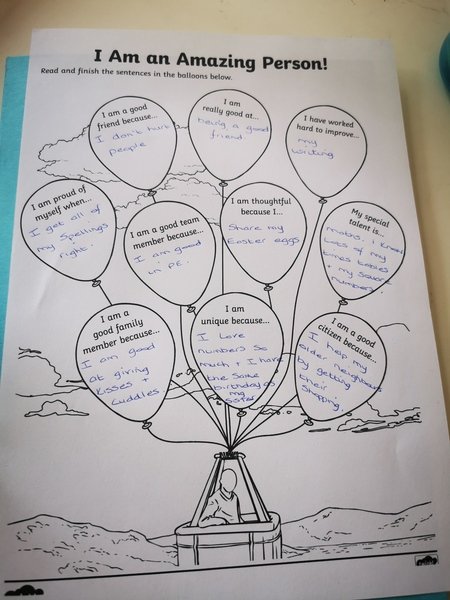 I Am an Amazing Person!
Read and finish the sentences in the balloons below.
I am a good
friend because...
I don't hurt
people
I am
really good at...
being a good
friend.
I have worked
hard to improve...
my
writing
I am proud of
myself when...
I get all of
my spellings
right.
I am a good team
member because...
I am good
in PE.
I am thoughtful
because I...
Share my
Easter eggs
My special
talent is...
maths, i know
lots of my
times tables
+ my square
numbers.
I am a
good family
member because...
I am good
at giving
kisses +
cuddles.
I am
unique because...
I love
numbers so
much + I have
the same
birthday as
my
sister
I am a good
citizen because...
I help my
older neighbours
by getting
their
shopping.